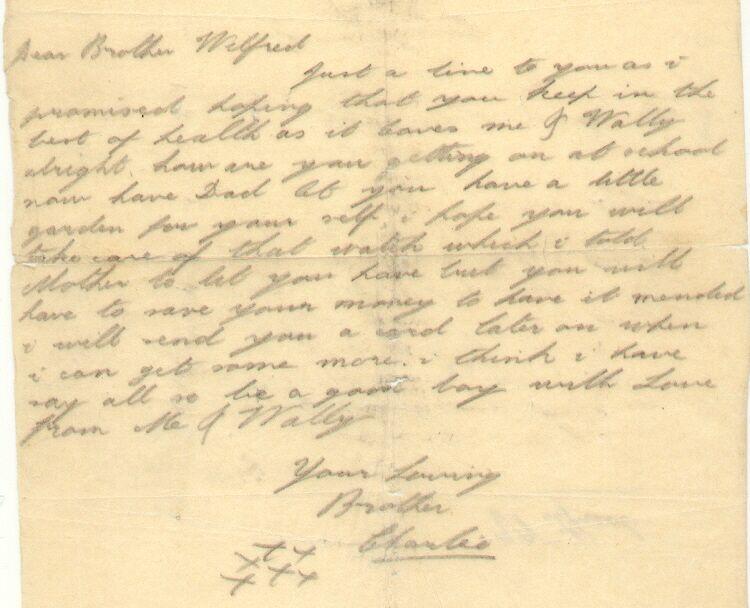 Dear Brother Wilfred
Just a line to you as i
promised hoping that you keep in the
best of health as it leaves me & Wally
alright. how are you getting on at school
now have Dad let you have a little
garden for your self i hope you will
take care of that watch which i told
Mother to let you have but you will
have to save your money to have it mended
i will send you a card later on when
i can get some more. i think i have
say all so be a good boy with Love
from Me & Wally
Your Loving
Brother
Charles
x x x
x x x x